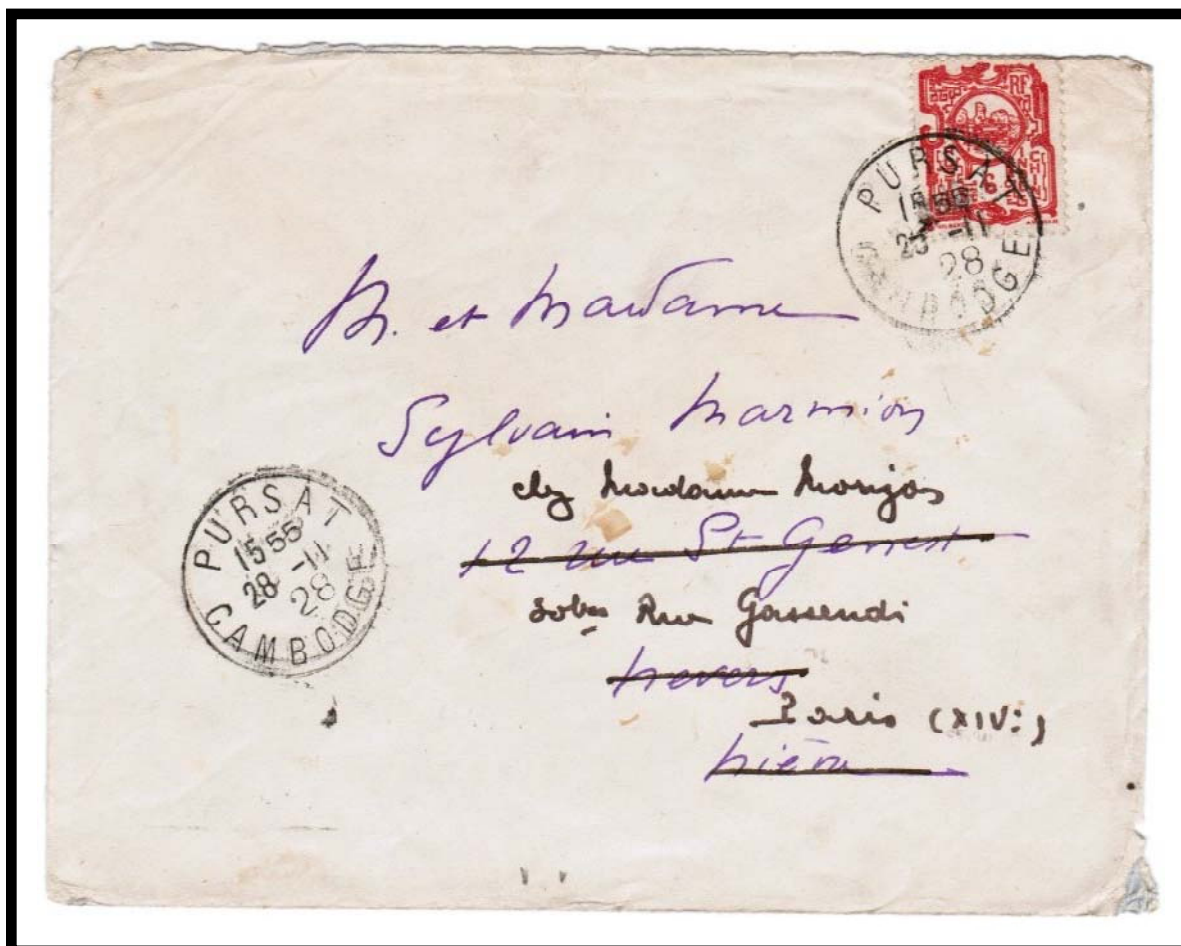 RF
6
PURSAT
1555
28 -11
28
CAMBODGE
M. et Madame
Sylvain Marmion
chez Madame
12 rue St Genest
30bis Rue Gassendi
Nevers
Paris (XIVe)
Nièvre
PURSAT
1555
28 -11
28
CAMBODGE